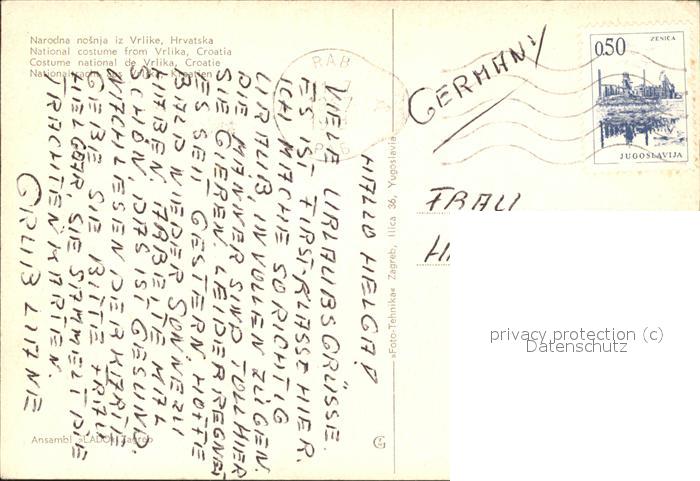 Narodna nošnja iz Vrlike, Hrvatska
National costume from Vrlika, Croatia
Costume national de Vrlika, Croatie
RAB
GERMANY
0.50
ZENICA
JUGOSLAVIJA
FRAU
HALLO HELGA!
VIELE URLAUBSGRÜSSE.
ES IST FIRST-KLASSE HIER.
ICH MACHE SO RICHTIG
URLAUB, IN VOLLEN ZÜGEN.
DIE MÄNNER SIND TOLL HIER
SIE GIEREN. LEIDER REGNET
ES SEIT GESTERN. HOFFE
BALD WIEDER SONNE ZU
HABEN. FARBE
SCHÖN, DAS IST GESUND.
NACH LIESEN DER KARTE
GEBE SIE BITTE FRAU
SIE SAMMELT DIE
TRACHTEN KARTEN.
GRUß LIANE
»Foto-Tehnika« Zagreb, Ilica 36, Yugoslavia
Ansambl »LADO« Zagreb
privacy protection (c)
Datenschutz